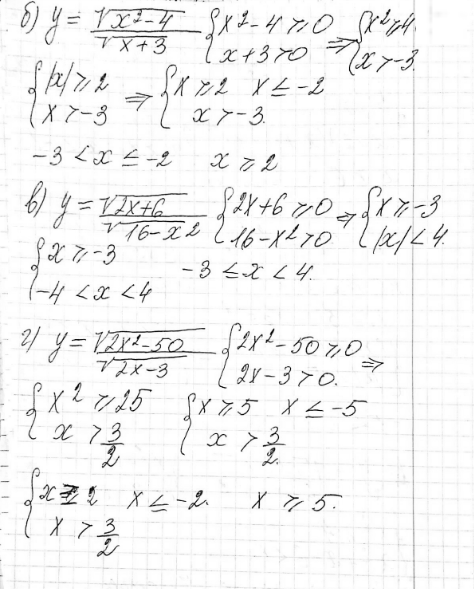 б) y = √(x²-4)/√(x+3) { x²-4 ⩾ 0 x+3 > 0 ⇒ { x² ⩾ 4 x > -3.
{ |x| ⩾ 2 x > -3 ⇒ { x ⩾ 2 x ≤ -2 x > -3.
-3 < x ≤ -2 x ⩾ 2
в) y = √(2x+6)/√(16-x2) { 2x+6 ⩾ 0 16-x² > 0 ⇒ { x ⩾ -3 |x| < 4.
{ x ⩾ -3 -4 < x < 4 -3 ≤ x < 4.
г) y = √(2x²-50)/√(2x-3) { 2x²-50 ⩾ 0 2x-3 > 0. ⇒
{ x² ⩾ 25 x > 3/2 { x ⩾ 5 x ≤ -5 x > 3/2.
{ x 2 x ≤ -2. x ⩾ 5. x > 3/2